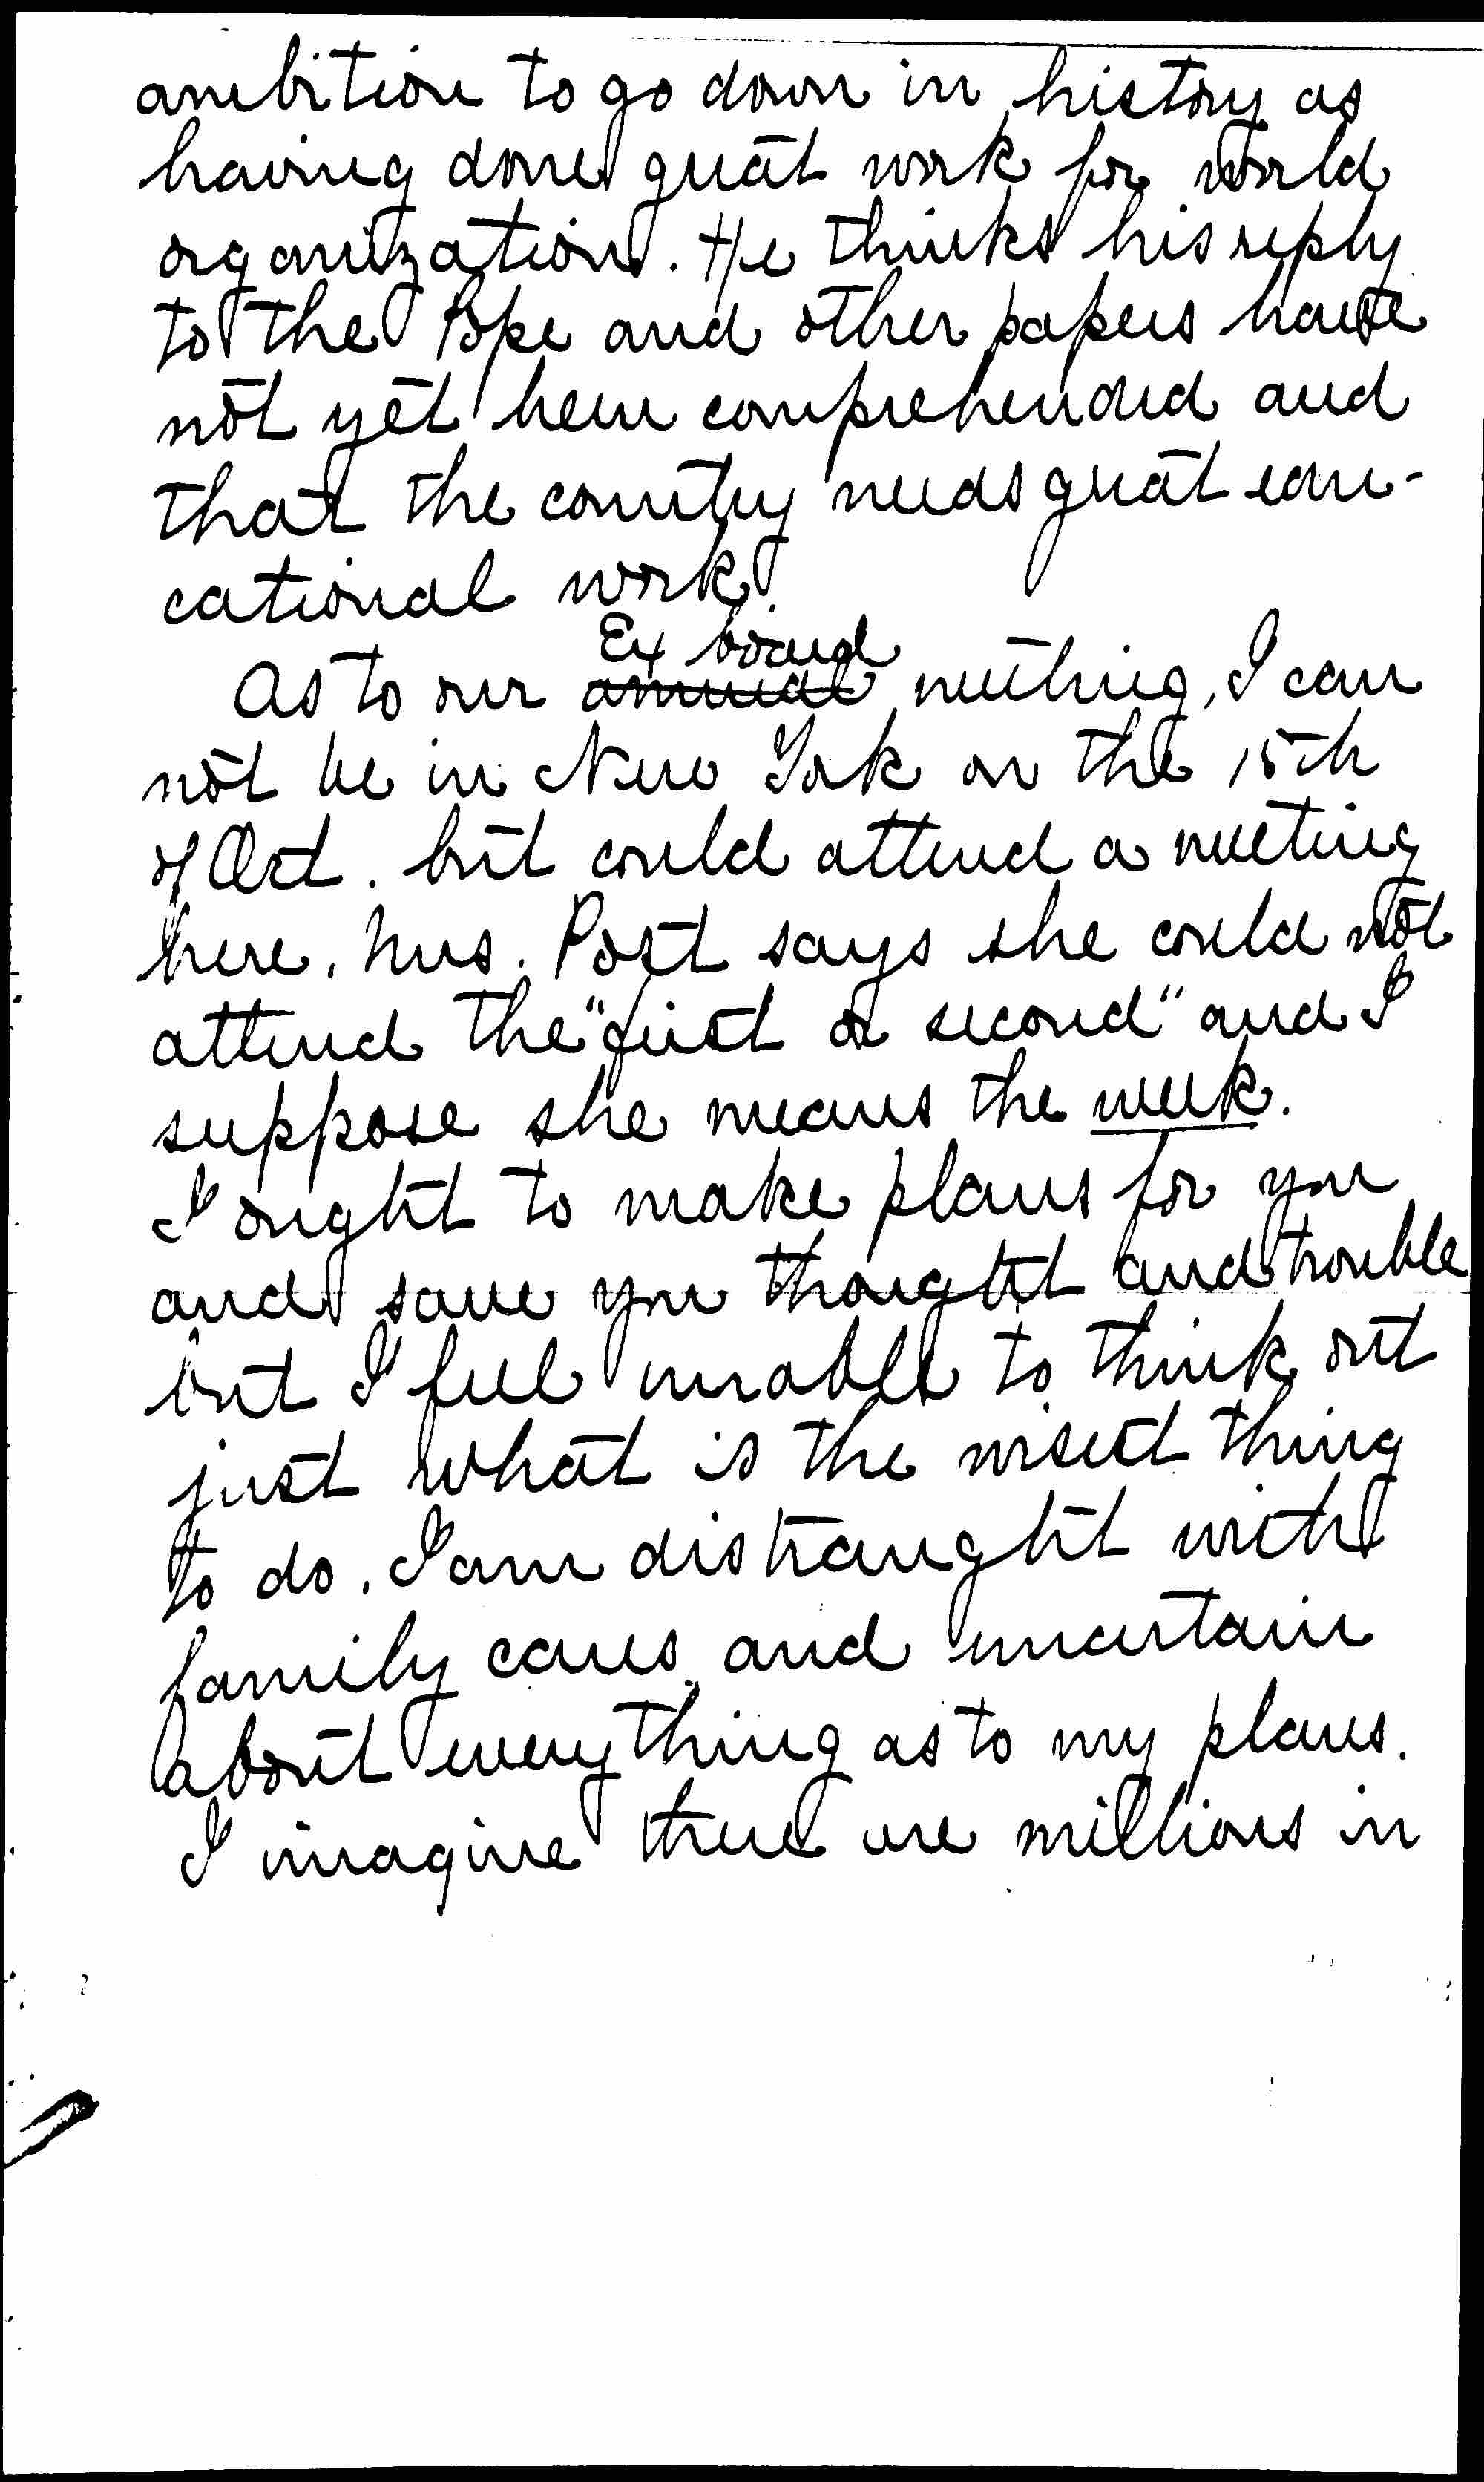 ambition to go down in history as
having done great work for world
organization. He thinks his reply
to the Pope and other papers have
not yet been comprehended and
that the country needs great edu-
cational work.
Ex board
As to our annual meeting, I can
not be in New York on the 15th
of Oct. but could attend a meeting
here. Mrs. Post says she could not
attend the "first or second" and I
suppose she means the week.
I ought to make plans for you
and save you thought and trouble
but I feel unable to think out
just what is the wisest thing
to do. I am distraught with
family cares and uncertain
about everything as to my plans.
I imagine there are millions in